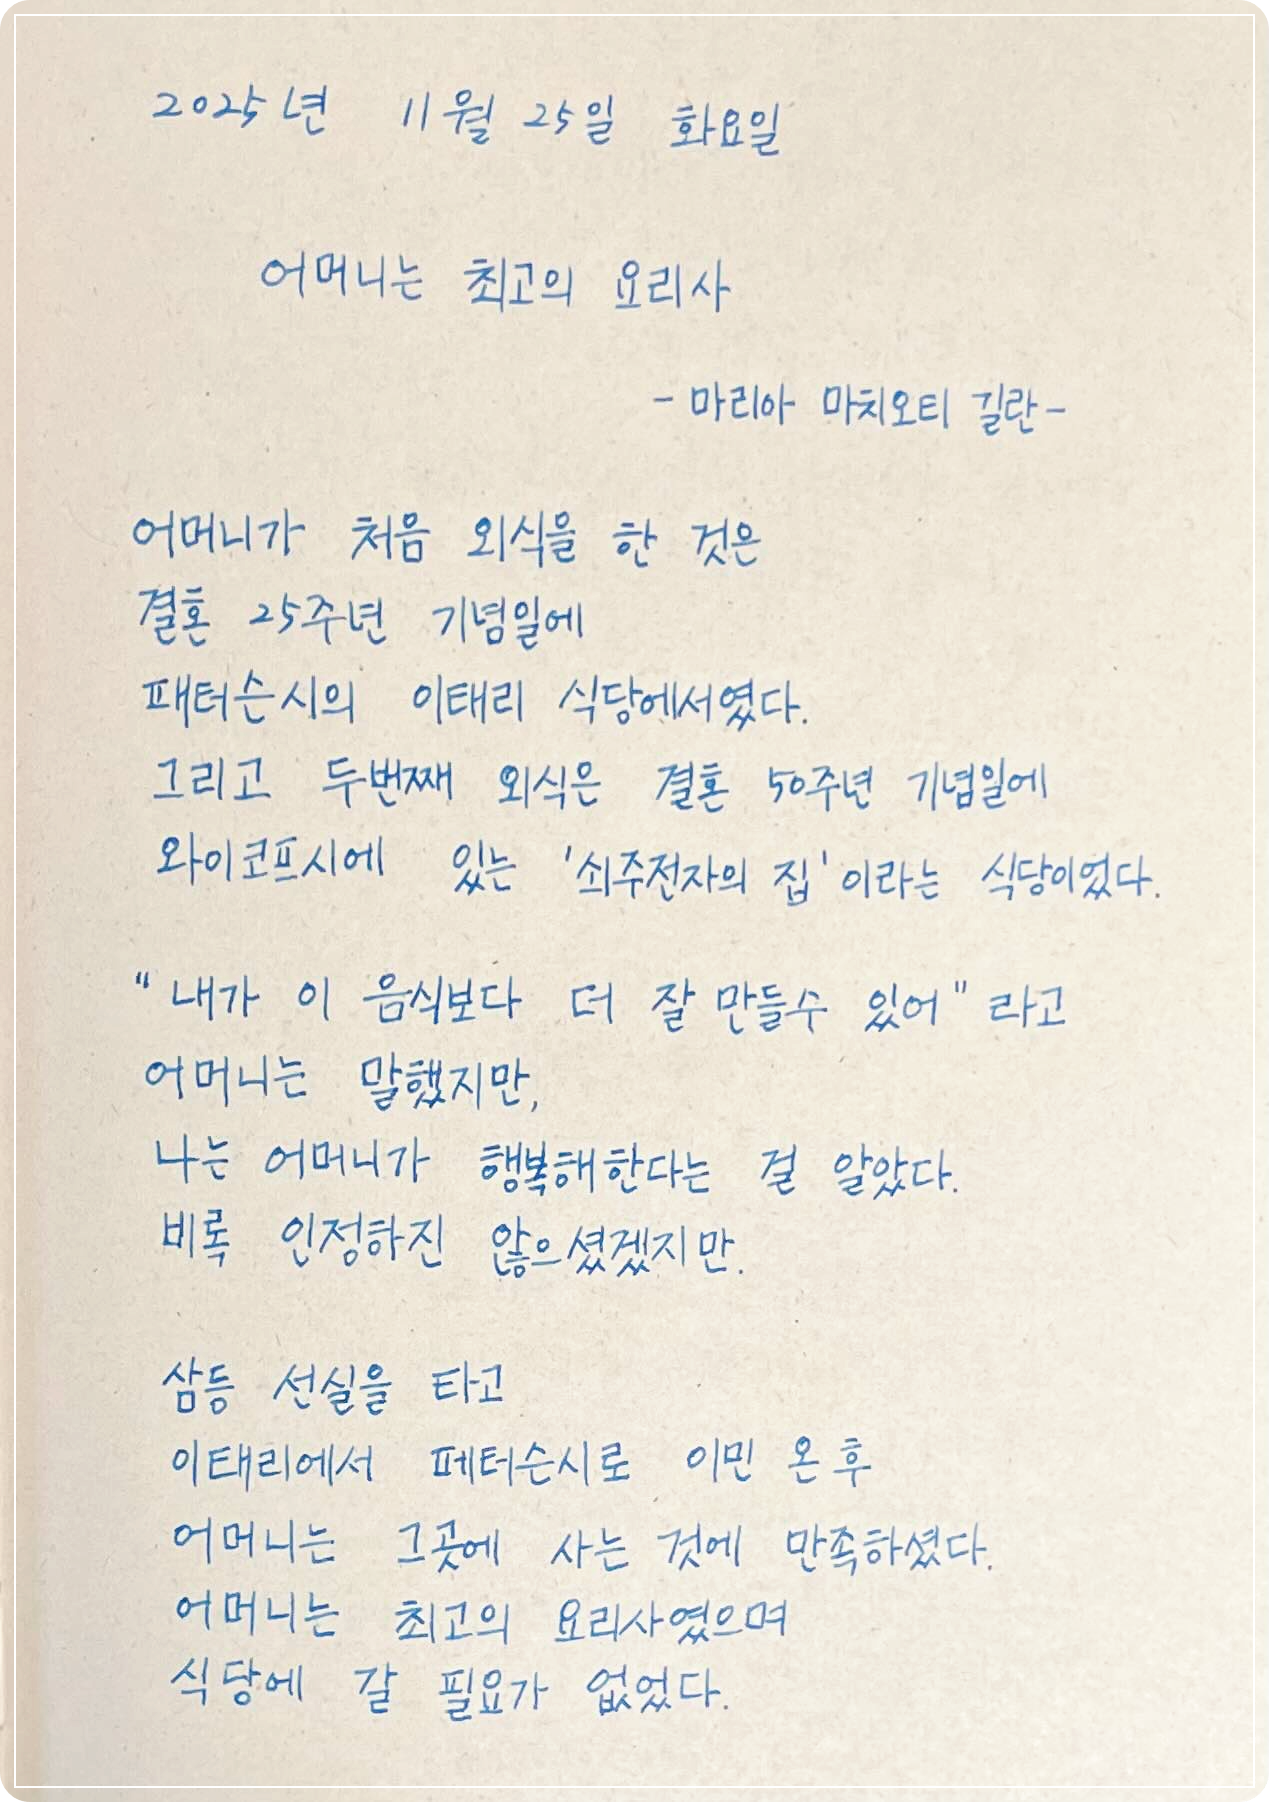 2025년 11월 25일 화요일
어머니는 최고의 요리사
- 마리아 마치오티 길란 -
어머니가 처음 외식을 한 것은
결혼 25주년 기념일에
패터슨시의 이태리 식당에서였다.
그리고 두번째 외식은 결혼 50주년 기념일에
와이코프시에 있는 '쇠주전자의 집' 이라는 식당이었다.
"내가 이 음식보다 더 잘 만들수 있어" 라고
어머니는 말했지만,
나는 어머니가 행복해한다는 걸 알았다.
비록 인정하진 않으셨겠지만.
삼등 선실을 타고
이태리에서 페터슨시로 이민 온 후
어머니는 그곳에 사는 것에 만족하셨다.
어머니는 최고의 요리사였으며
식당에 갈 필요가 없었다.